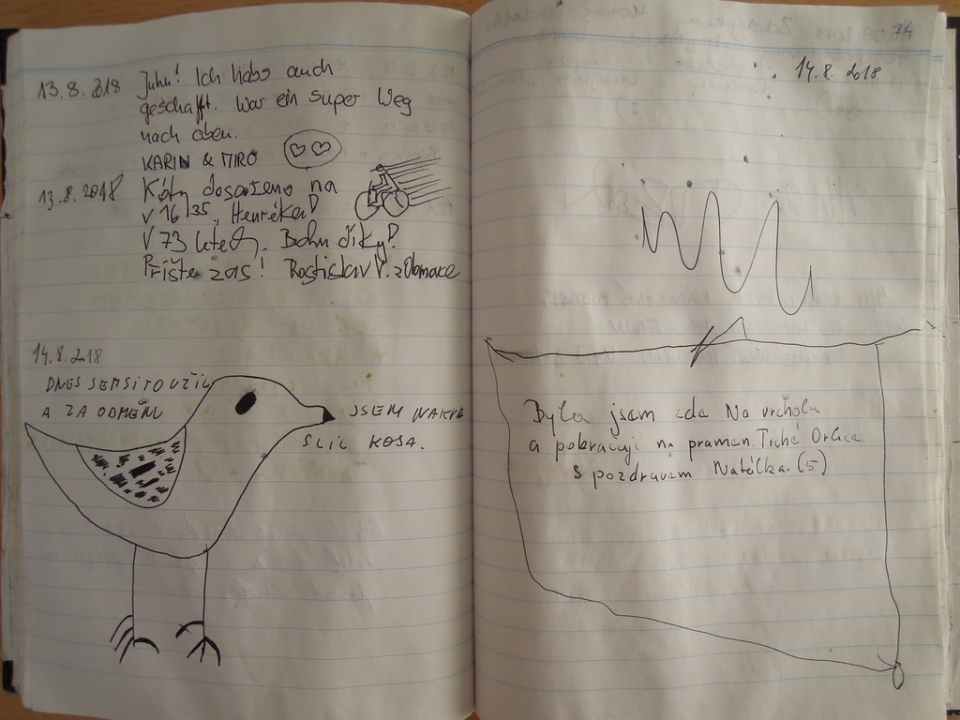 13.8.2018 Juhu! Ich habs auch
geschafft. War ein super Weg
nach oben.
KARIN & MIRO
13.8.2018 Kóty dosaženo na
v 16/35,
V 73 letech. Bohu díky!
Příště 2015! Rostislav V. z Olomouce
14.8.2018
DNES SEM SI TO UŽIL
A ZA ODMĚNU JSEM NAKRE
SLIL KOSA.
74
14.8.2018
Byla jsem zda Na vrcholu
a pokračuji na pramen Tiché Orlice
S pozdravem Natálka. (5)